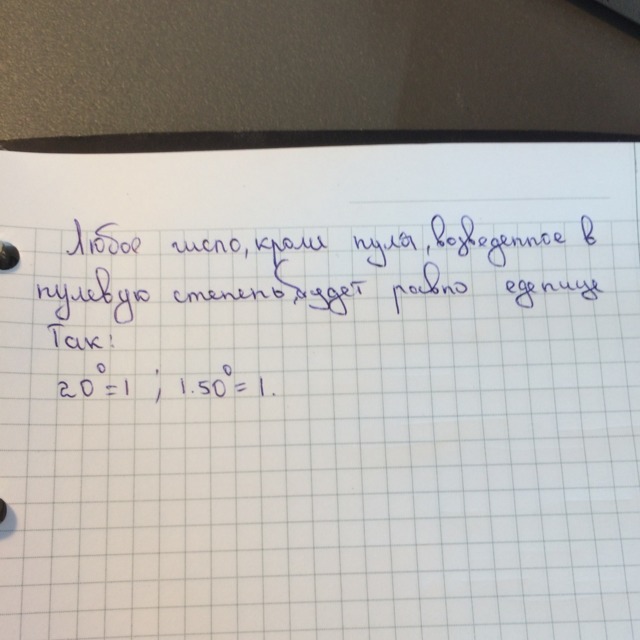 Любое число, кроме нуля, возведенное в
нулевую степень будет равно еденице
Так:
20⁰=1 ; 1.50⁰=1.